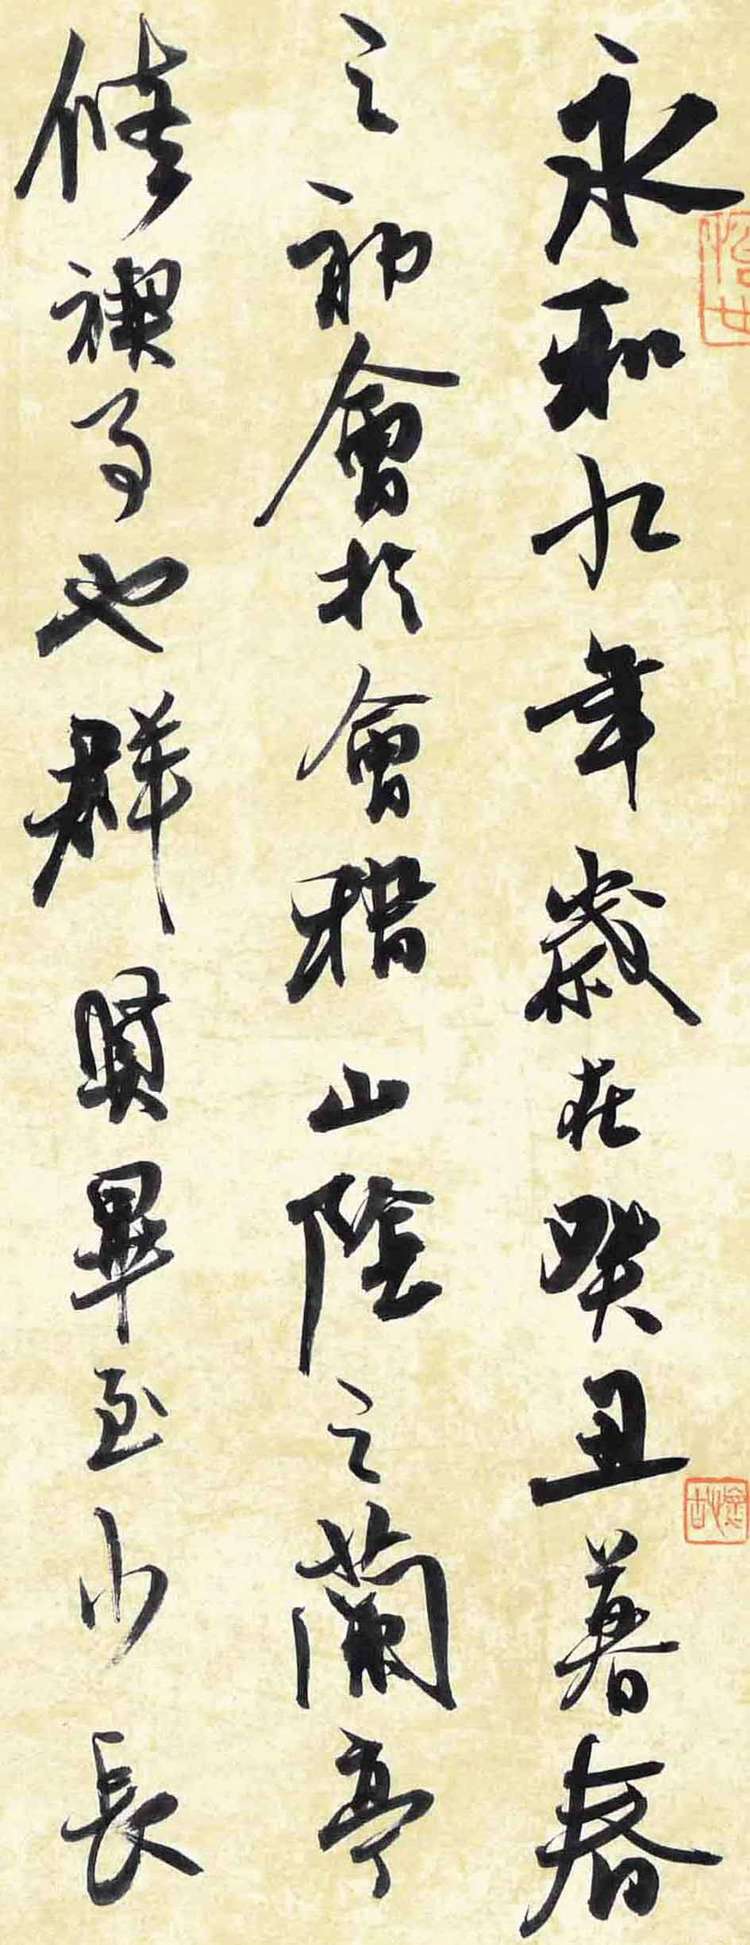 永和九年歲在癸丑暮春
之初會於會稽山陰之蘭亭
脩禊事也群賢畢至少長